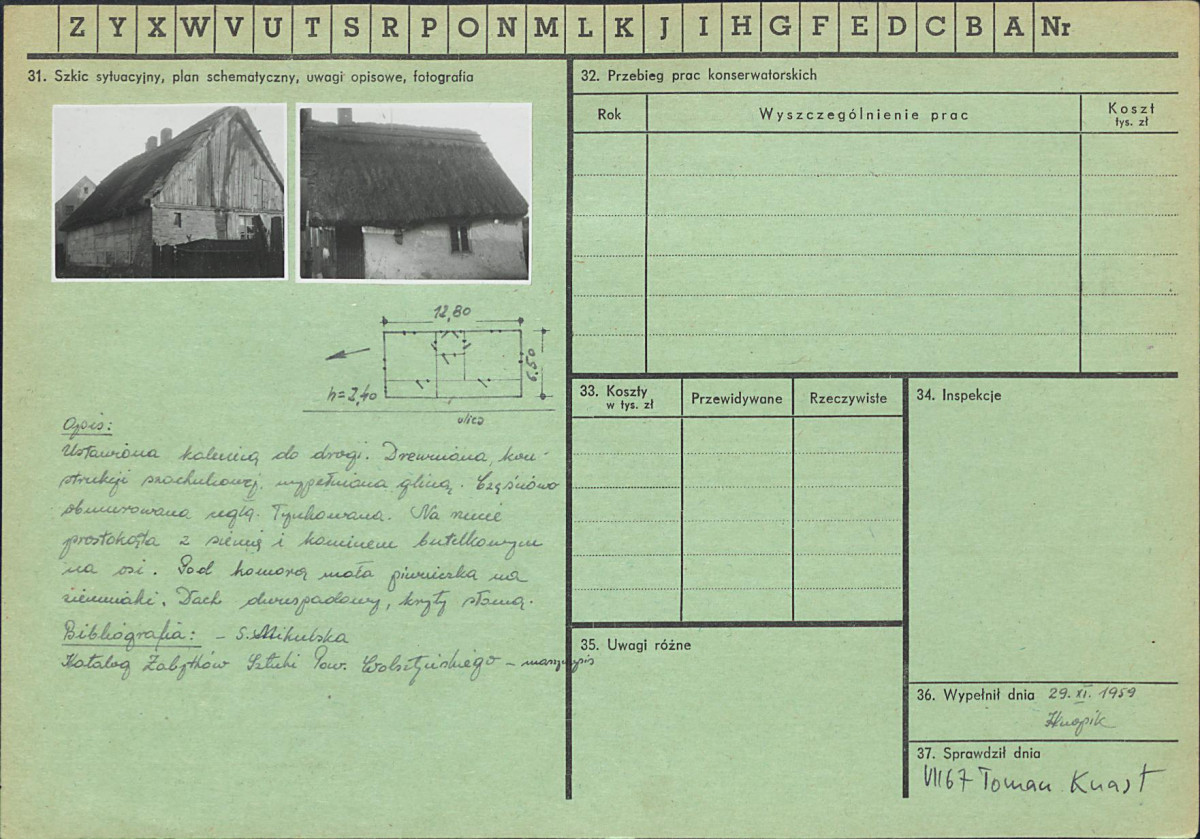 Z Y X W V U T S R P O N M L K J I H G F E D C B A Nr
31. Szkic sytuacyjny, plan schematyczny, uwagi opisowe, fotografia
12,80
6.50
h=2,40
ulica
Opis:
Ustawiona kalenicą do drogi. Drewniana, kon-
strukcji szachulcowej, wypełniana gliną. Częściowo
obmurowana cegłą. Tynkowana. Na rzucie
prostokąta z sienią i kominem butelkowym
na osi. Pod komorą mała piwniczka na
ziemniaki. Dach dwuspadowy, kryty słomą.
Bibliografia: - S. Mikulska
Katalog Zabytków Sztuki Pow. Wolsztyńskiego - maszynopis
32. Przebieg prac konserwatorskich
Rok Wyszczególnienie prac Koszt
tys. zł
33. Koszty
w tys. zł
Przewidywane Rzeczywiste
34. Inspekcje
35. Uwagi różne
36. Wypełnił dnia 29. XI. 1959
37. Sprawdził dnia
VII 67 Toman Knast